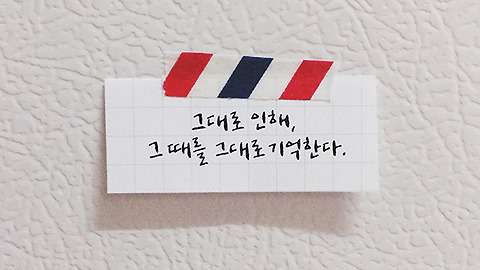 그대로 인해,
그 때를 그대로 기억한다.